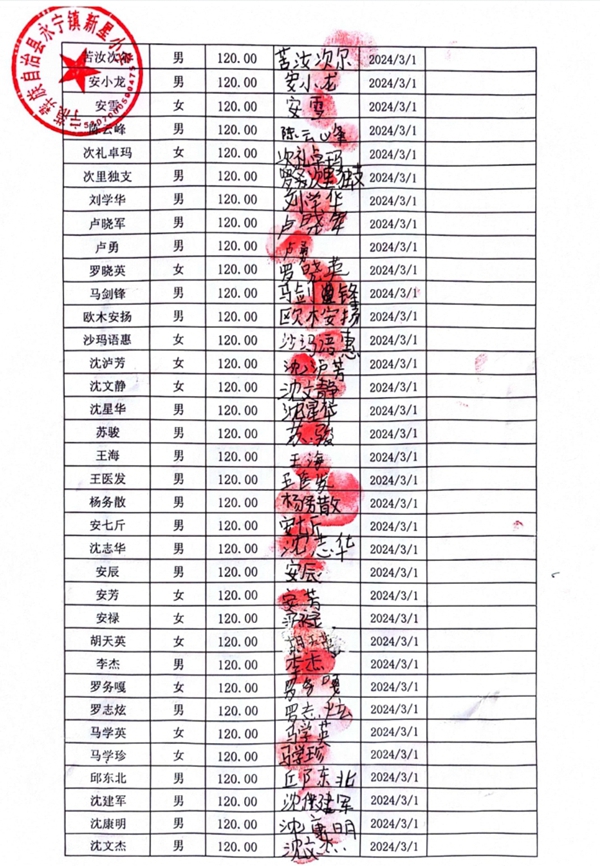 自治县永宁镇新星小
苦汝次尔 男 120.00 苦汝次尔 2024/3/1
安小龙 男 120.00 安小龙 2024/3/1
安雪 女 120.00 安雪 2024/3/1
陈云峰 男 120.00 陈云峰 2024/3/1
次礼卓玛 女 120.00 次礼卓玛 2024/3/1
次里独支 男 120.00 次里独支 2024/3/1
刘学华 男 120.00 刘学华 2024/3/1
卢晓军 男 120.00 卢晓军 2024/3/1
卢勇 男 120.00 卢勇 2024/3/1
罗晓英 女 120.00 罗晓英 2024/3/1
马剑锋 男 120.00 马剑锋 2024/3/1
欧木安扬 男 120.00 欧木安扬 2024/3/1
沙玛语惠 女 120.00 沙玛语惠 2024/3/1
沈泸芳 女 120.00 沈泸芳 2024/3/1
沈文静 女 120.00 沈文静 2024/3/1
沈星华 男 120.00 沈星华 2024/3/1
苏骏 男 120.00 苏骏 2024/3/1
王海 男 120.00 王海 2024/3/1
王医发 男 120.00 王医发 2024/3/1
杨务散 男 120.00 杨务散 2024/3/1
安七斤 男 120.00 安七斤 2024/3/1
沈志华 男 120.00 沈志华 2024/3/1
安辰 男 120.00 安辰 2024/3/1
安芳 女 120.00 安芳 2024/3/1
安禄 女 120.00 2024/3/1
胡天英 女 120.00 胡天英 2024/3/1
李杰 男 120.00 李杰 2024/3/1
罗务嘎 女 120.00 罗务嘎 2024/3/1
罗志炫 男 120.00 罗志炫 2024/3/1
马学英 女 120.00 马学英 2024/3/1
马学珍 女 120.00 马学珍 2024/3/1
邱东北 男 120.00 邱东北 2024/3/1
沈建军 男 120.00 沈建军 2024/3/1
沈康明 男 120.00 沈康明 2024/3/1
沈文杰 男 120.00 沈文杰 2024/3/1